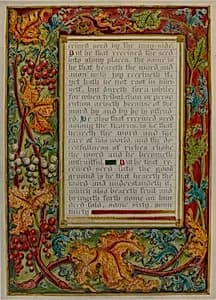 ceived seed by the way-side.
But he that received the seed
into stony places, the same is
he that heareth the word and
anon with joy receiveth it;
yet hath he not root in him-
self, but dureth for a while:
for when tribulation or perse-
cution ariseth because of the
word by and by he is offend-
ed. He also that received seed
among the thorns is he that
heareth the word and the
care of this world, and the de-
ceitfulness of riches choke
the word and he becometh
unfruitful. But he that re-
ceived seed into the good
ground is he that heareth the
word and understandeth it,
which also beareth fruit and
bringeth forth some an hun-
dred fold, some sixty, some
thirty